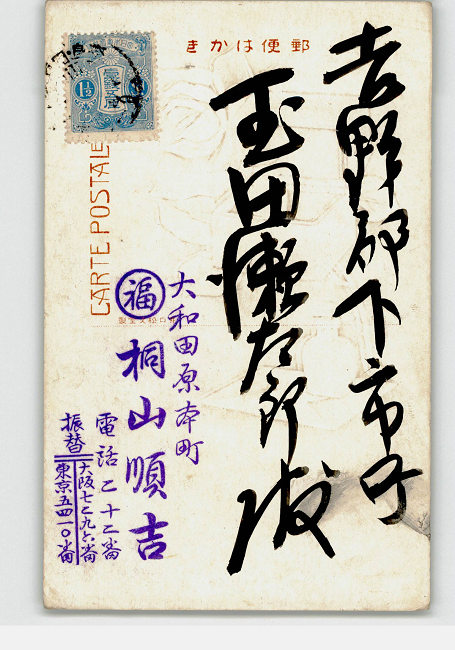 郵便はかき
吉野郡下市町
玉田瀬太郎様
大和田原本町
福
桐山順吉
電話二十二番
振替
大阪七二九六番
東京五四一〇番
CARTE POSTALE
1½